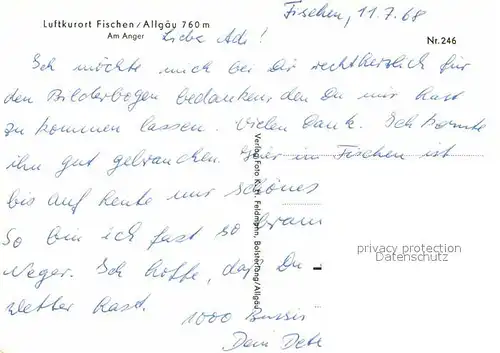 Fischen, 11.7.68
Luftkurort Fischen/Allgäu 760 m
Am Anger
Nr. 246
Liebe Adi!
Ich möchte mich bei Dir rechtherzlich für
den Bilderbogen bedanken, den Du mir hast
zu kommen lassen. Vielen Dank. Ich konnte
ihn gut gebrauchen. Hier in Fischen ist
bis auf heute nur schönes
So bin ich fast so braun
Neger. Ich hoffe, daß Du
Wetter hast.
1000 Bussis
Dein
Verlag Foto Kurt Feldmann, Bolsterlang/Allgäu
privacy protection
Datenschutz